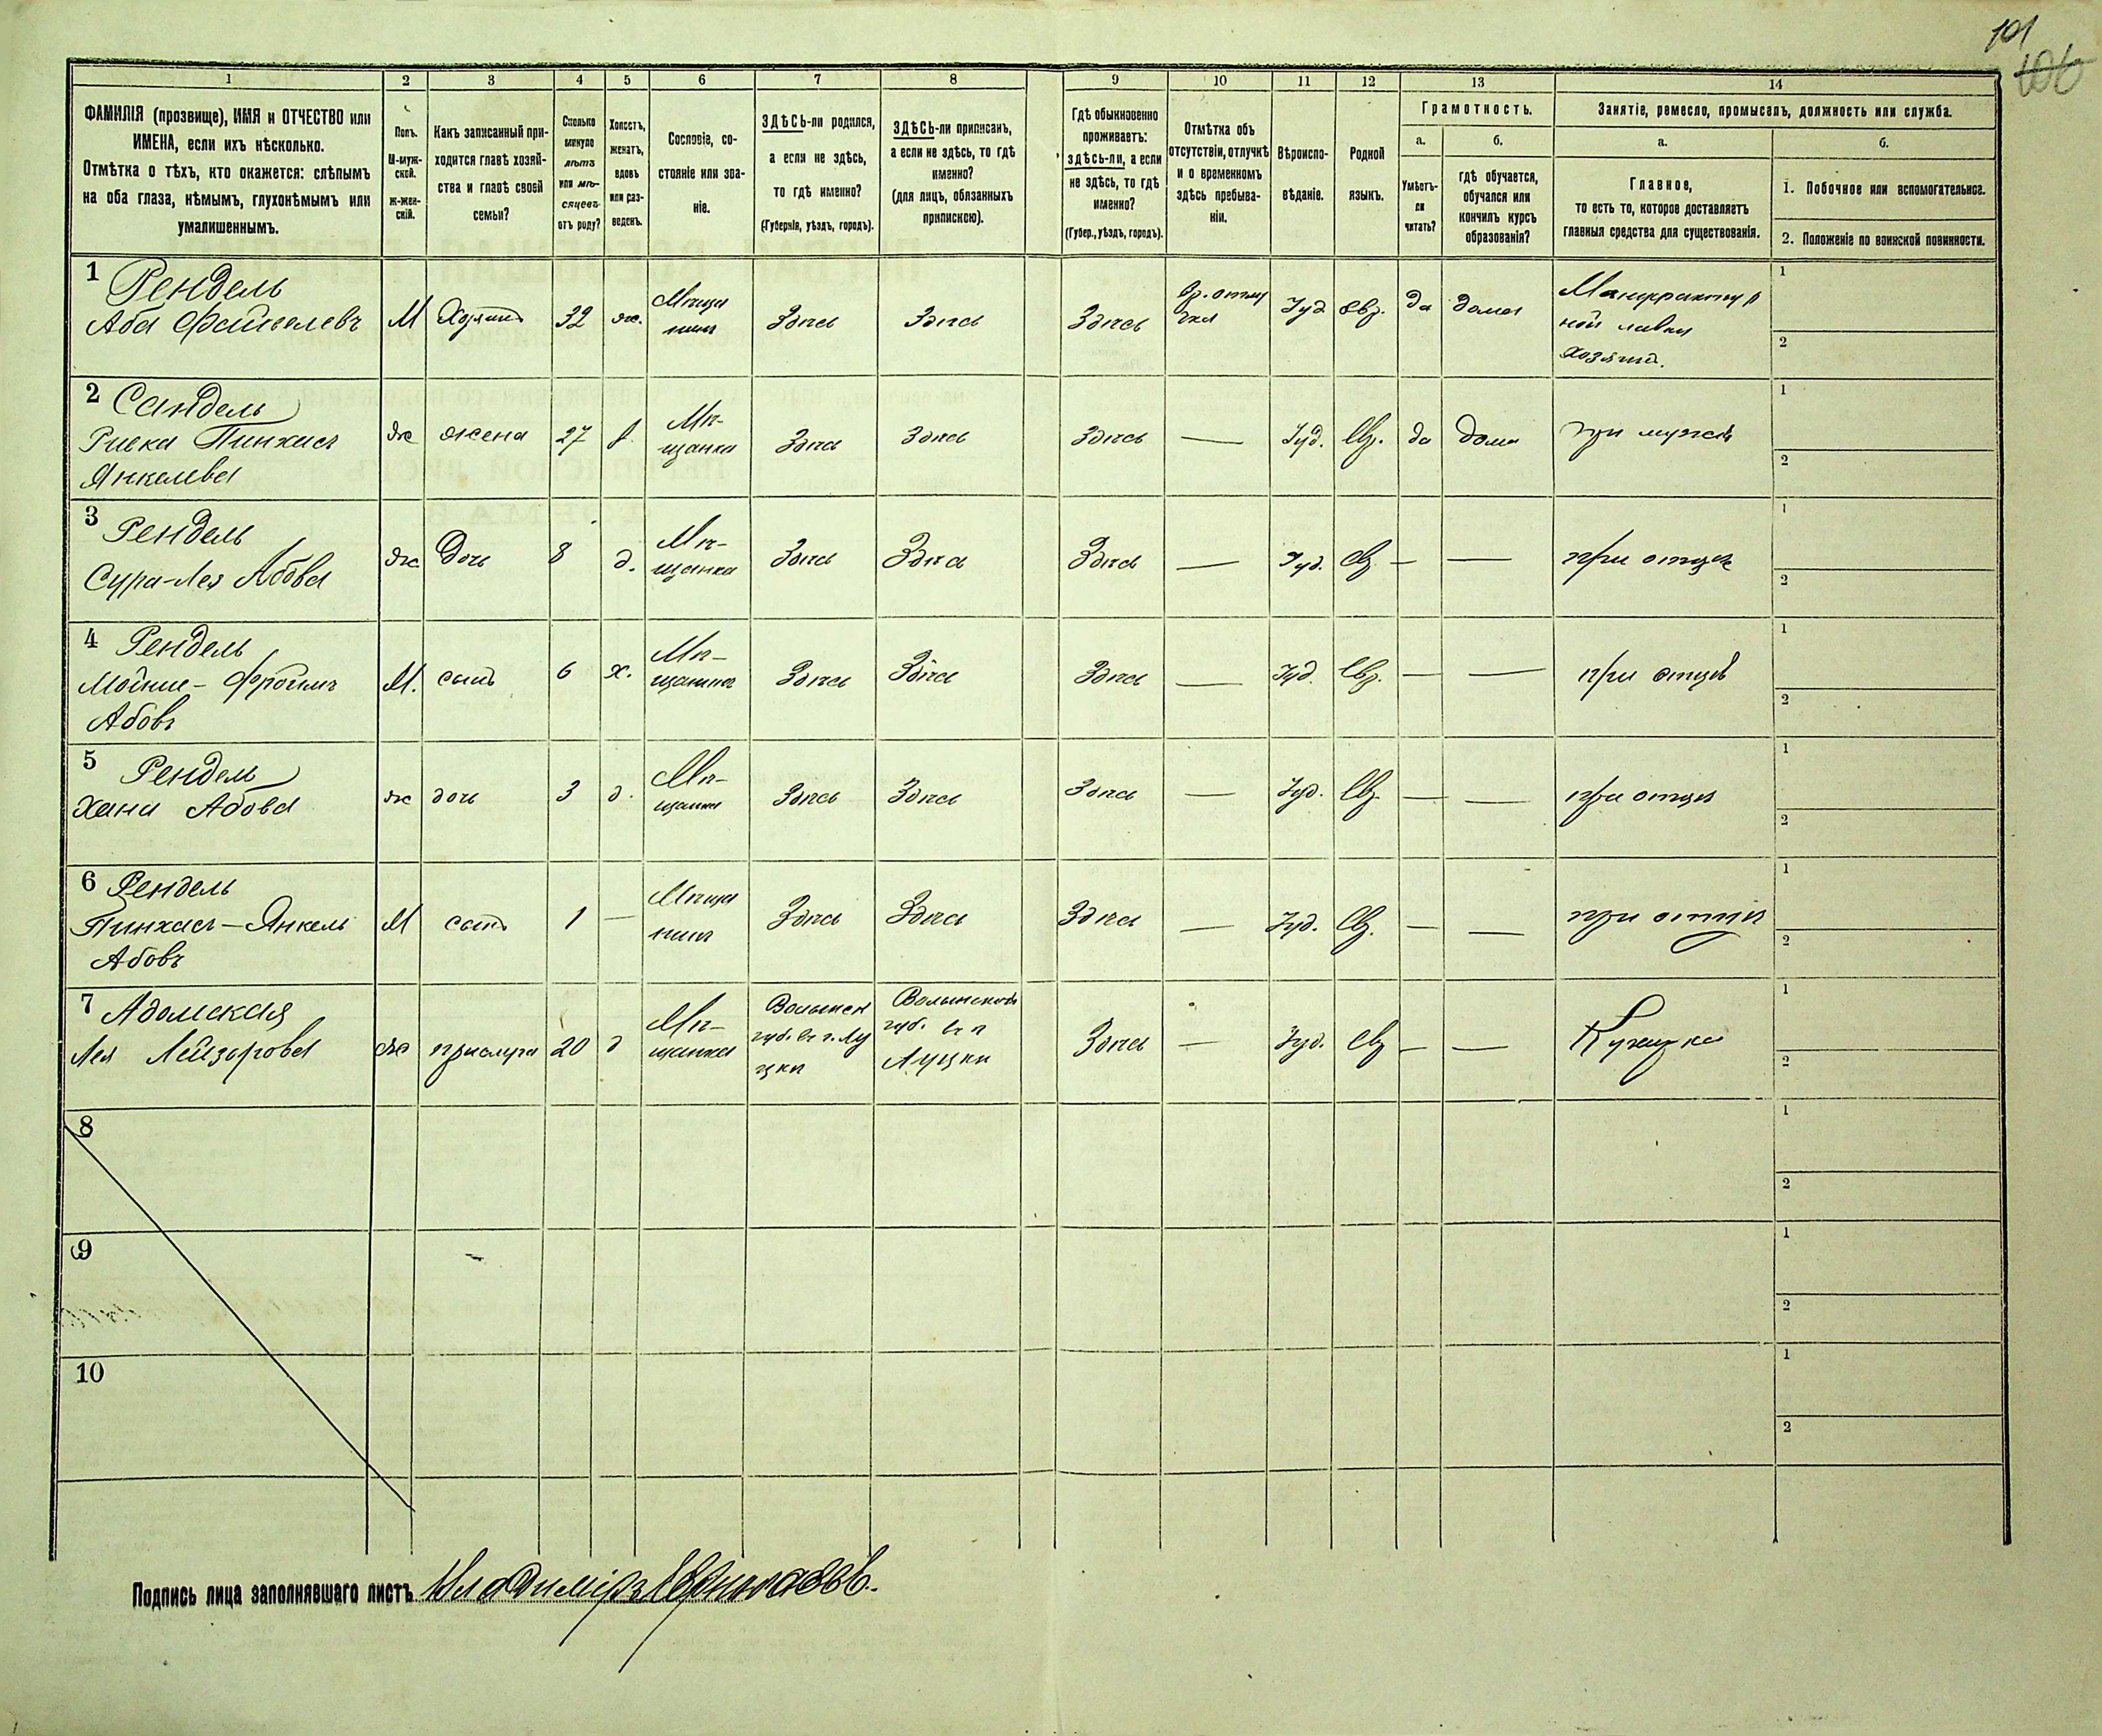 101
106
1
2
3
4
5
6
7
8
9
10
11
12
13
14
ФАМИЛІЯ (прозвище), ИМЯ и ОТЧЕСТВО или
ИМЕНА, если ихъ нѣсколько.
Отмѣтка о тѣхъ, кто окажется: слѣпымъ
на оба глаза, нѣмымъ, глухонѣмымъ или
умалишеннымъ.
Полъ.
М-муж-
ской.
Ж-жен-
скій.
Какъ записанный при-
ходится главѣ хозяй-
ства и главѣ своей
семьи?
Сколько
минуло
лѣтъ
или мѣ-
сяцевъ
отъ роду?
Холостъ,
женатъ,
вдовъ
или раз-
веденъ.
Сословіе, со-
стояніе или зва-
ніе.
ЗДѢСЬ-ли родился,
а если не здѣсь,
то гдѣ именно?
(Губернія, уѣздъ, городъ).
ЗДѢСЬ-ли приписанъ,
а если не здѣсь, то гдѣ
именно?
(для лицъ, обязанныхъ
припискою).
Гдѣ обыкновенно
проживаетъ:
здѣсь-ли, а если
не здѣсь, то гдѣ
именно?
(Губер., уѣздъ, городъ).
Отмѣтка объ
отсутствіи, отлучкѣ
и о временномъ
здѣсь пребыва-
ніи.
Вѣроиспо-
вѣданіе.
Родной
языкъ.
Грамотность.
а.
Умѣетъ-
ли
читать?
б.
гдѣ обучается,
обучался или
кончилъ курсъ
образованія?
Занятіе, ремесло, промыселъ, должность или служба.
а.
Главное,
то есть то, которое доставляетъ
главныя средства для существованія.
б.
1. Побочное или вспомогательное.
2. Положеніе по воинской повинности.
1 Рендель
Аба Файвелевъ
М
Хозяинъ
32
ж.
Мѣща
нинъ
Здѣсь
Здѣсь
Здѣсь
Вр. отлу
чка
Іуд
Евр.
да
дома
Мануфактур
ной лавки
хозяинъ.
1
2
2 Сандель
Ривка Пинхасъ
Янкелева
ж
жена
27
Мѣ-
щанка
Здѣсь
Здѣсь
Здѣсь
—
Іуд.
Евр.
да
дома
при мужѣ
1
2
3 Рендель
Сура-Лея Абова
ж
дочь
8
д.
Мѣ-
щанка
Здѣсь
Здѣсь
Здѣсь
—
Іуд.
Евр
—
—
при отцѣ
1
2
4 Рендель
Мойше-Фроимъ
Абовъ
М.
сынъ
6
х.
Мѣ-
щанинъ
Здѣсь
Здѣсь
Здѣсь
—
Іуд.
Евр.
—
—
при отцѣ
1
2
5 Рендель
Хана Абова
ж
дочь
3
д.
Мѣ-
щанка
Здѣсь
Здѣсь
Здѣсь
—
Іуд.
Евр
—
—
при отцѣ
1
2
6 Рендель
Пинхасъ-Янкель
Абовъ
М
сынъ
1
—
Мѣща
нинъ
Здѣсь
Здѣсь
Здѣсь
—
Іуд.
Евр.
—
—
при отцѣ
1
2
7 Адамская
Лея Лейзерова
ж
прислуга
20
д
Мѣ-
щанка
Волынск
губ. въ г. Лу
цкѣ
Волынской
губ. въ г
Луцкѣ
Здѣсь
—
Іуд.
Евр
—
—
Кухарка
1
2
8
1
2
9
1
2
10
1
2
Подпись лица заполнявшаго листъ Владиміръ